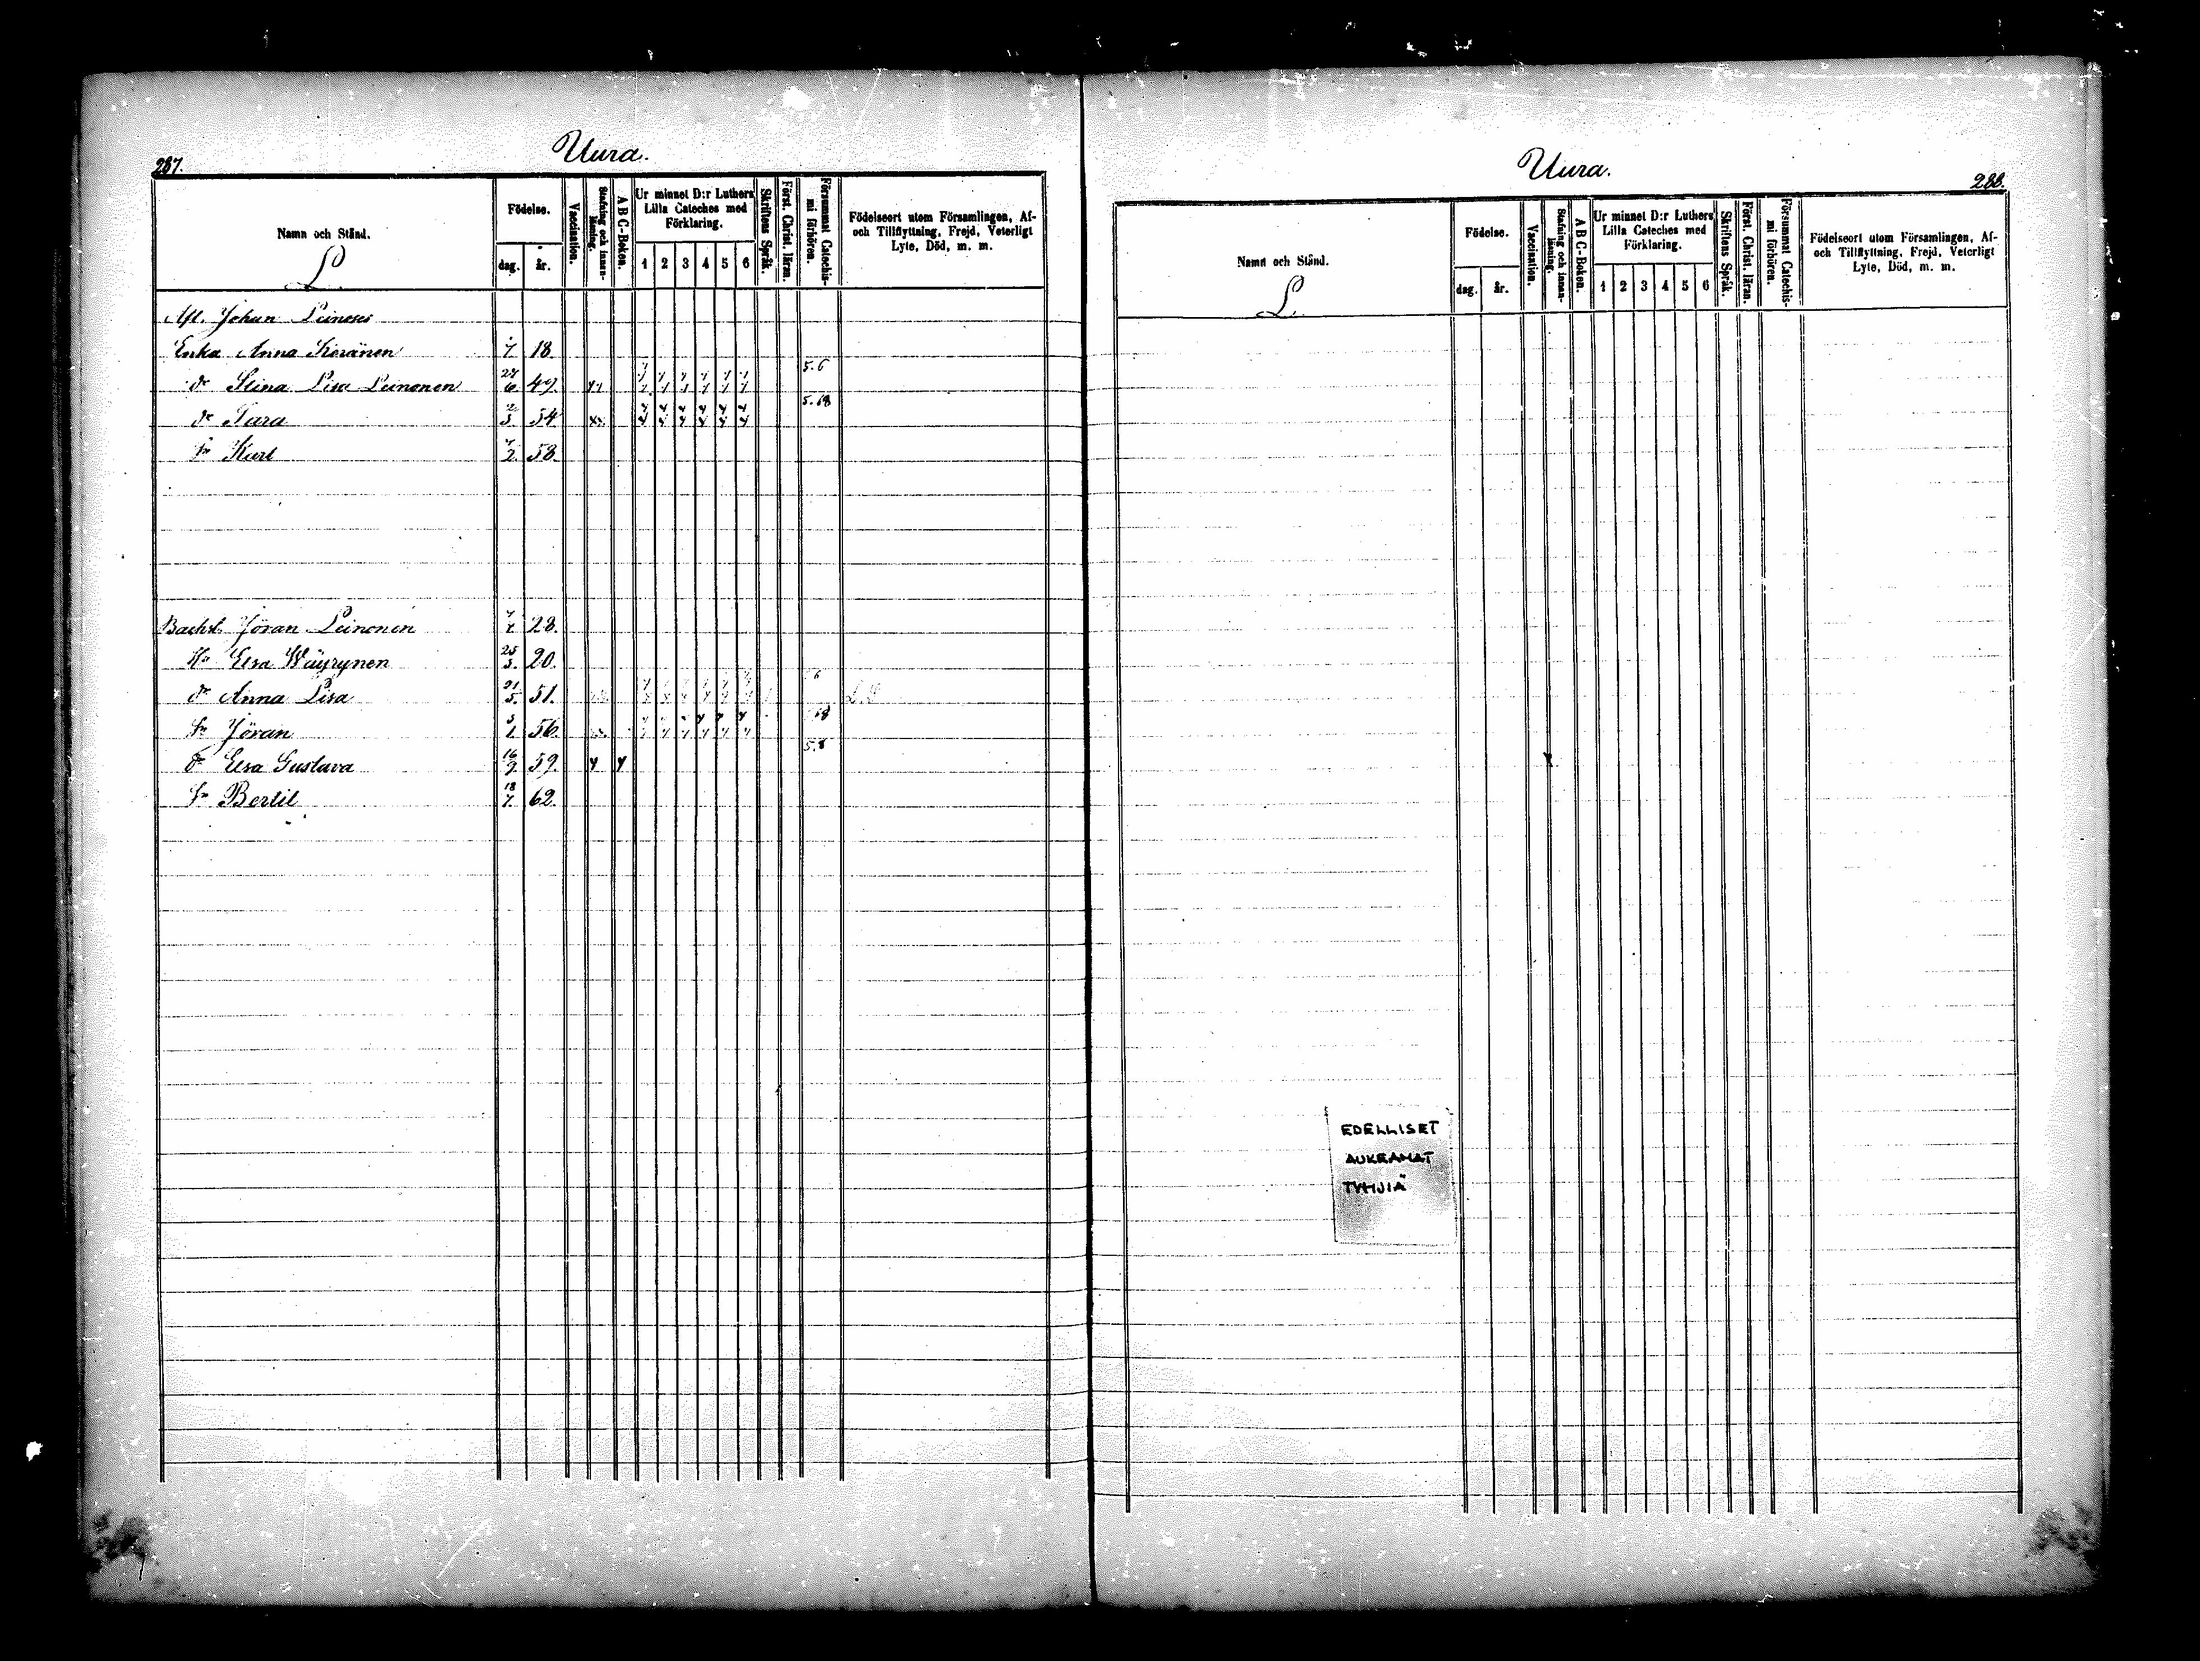 287.
Uura.
Namn och Stånd.
L.
Födelse.
dag. år.
Vaccination.
Stafning och innan-läsning.
A B C-Boken.
Ur minnet D:r Luthers
Lilla Cateches med
Förklaring.
1 2 3 4 5 6
Skriftens Språk.
Först. Christ. läran.
Försummat Catechis-
mi förhören.
Födelseort utom Församlingen, Af-
och Tillflyttning, Frejd, Veterligt
Lyte, Död, m. m.
Afl. Johan Leinonen
Enka Anna Keränen 18.
dr Stina Lisa Leinonen 24/6 47. 5.6
dr Sara 54 5.68
sn Karl 58.
Bachst. Jöran Leinonen 28.
Hu Elsa Wäyrynen 25/3 20.
dr Anna Lisa 21/5 51.
sn Jöran 3/1 56
dr Elsa Gustava 16/9 59. 5.8
sn Bertil 18/7 62.
Uura.
288.
Namn och Stånd.
L.
Födelse.
dag. år.
Vaccination.
Stafning och innan-läsning.
A B C-Boken.
Ur minnet D:r Luthers
Lilla Cateches med
Förklaring.
1 2 3 4 5 6
Skriftens Språk.
Först. Christ. läran.
Försummat Catechis-
mi förhören.
Födelseort utom Församlingen, Af-
och Tillflyttning, Frejd, Veterligt
Lyte, Död, m. m.
EDELLISET
AUKEAMAT
TYHJIÄ